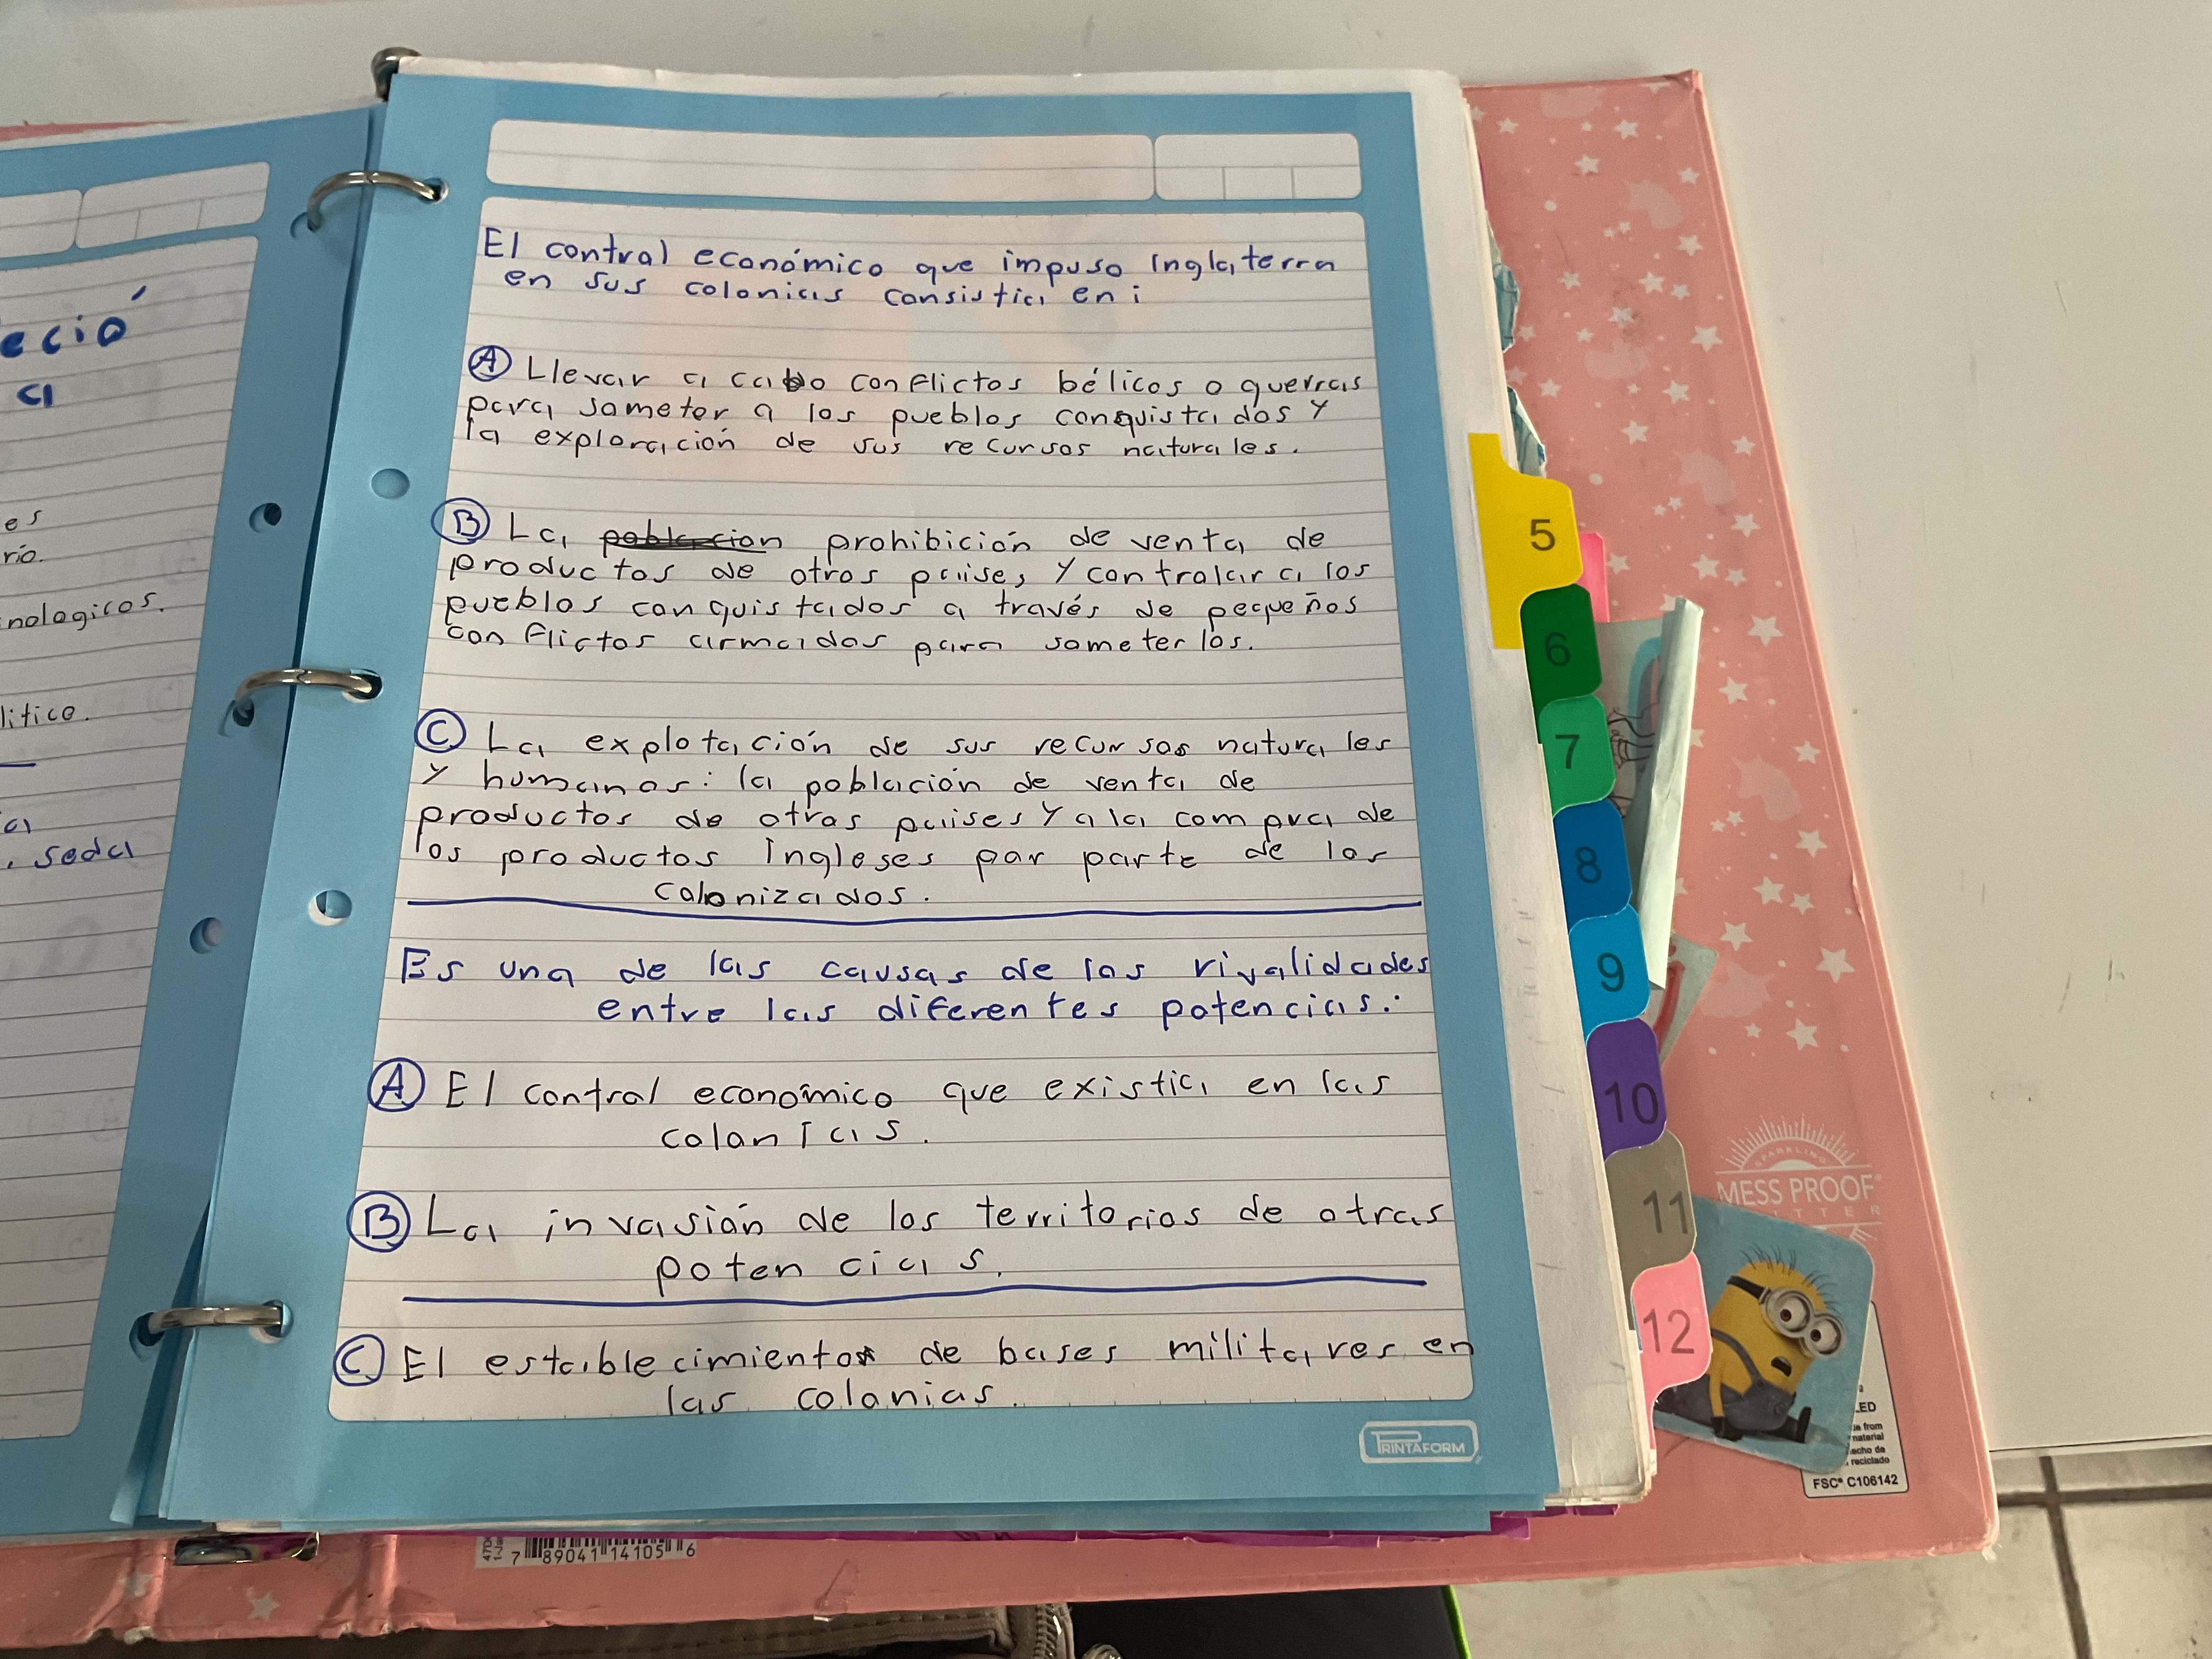 eció
a
es
rio.
nologicos.
litico.
a
, seda
El control económico que impuso Inglaterra
en sus colonias consistia en:
A Llevar a cabo conflictos bélicos o guerras
para someter a los pueblos conquistados y
la exploración de sus recursos naturales.
B La poblacion prohibición de venta de
productos de otros paises, y controlar a los
pueblos conquistados a través de pequeños
conflictos armados para someterlos.
C La explotación de sus recursos naturales
y humanos: la población de venta de
productos de otras paiises y a la compra de
los productos Ingleses por parte de los
colonizados.
Es una de las causas de las rivalidades
entre las diferentes potencias:
A El control económico que existia en las
colonias.
B La invasión de los territorios de otras
potencias.
C El establecimiento de bases militares en
las colonias.
PRINTAFORM
5
6
7
8
9
10
11
12
SPARKLING
MESS PROOF
ITTER
LED
from
material
echo de
reciclado
FSC® C106142
7 89041 14105 6